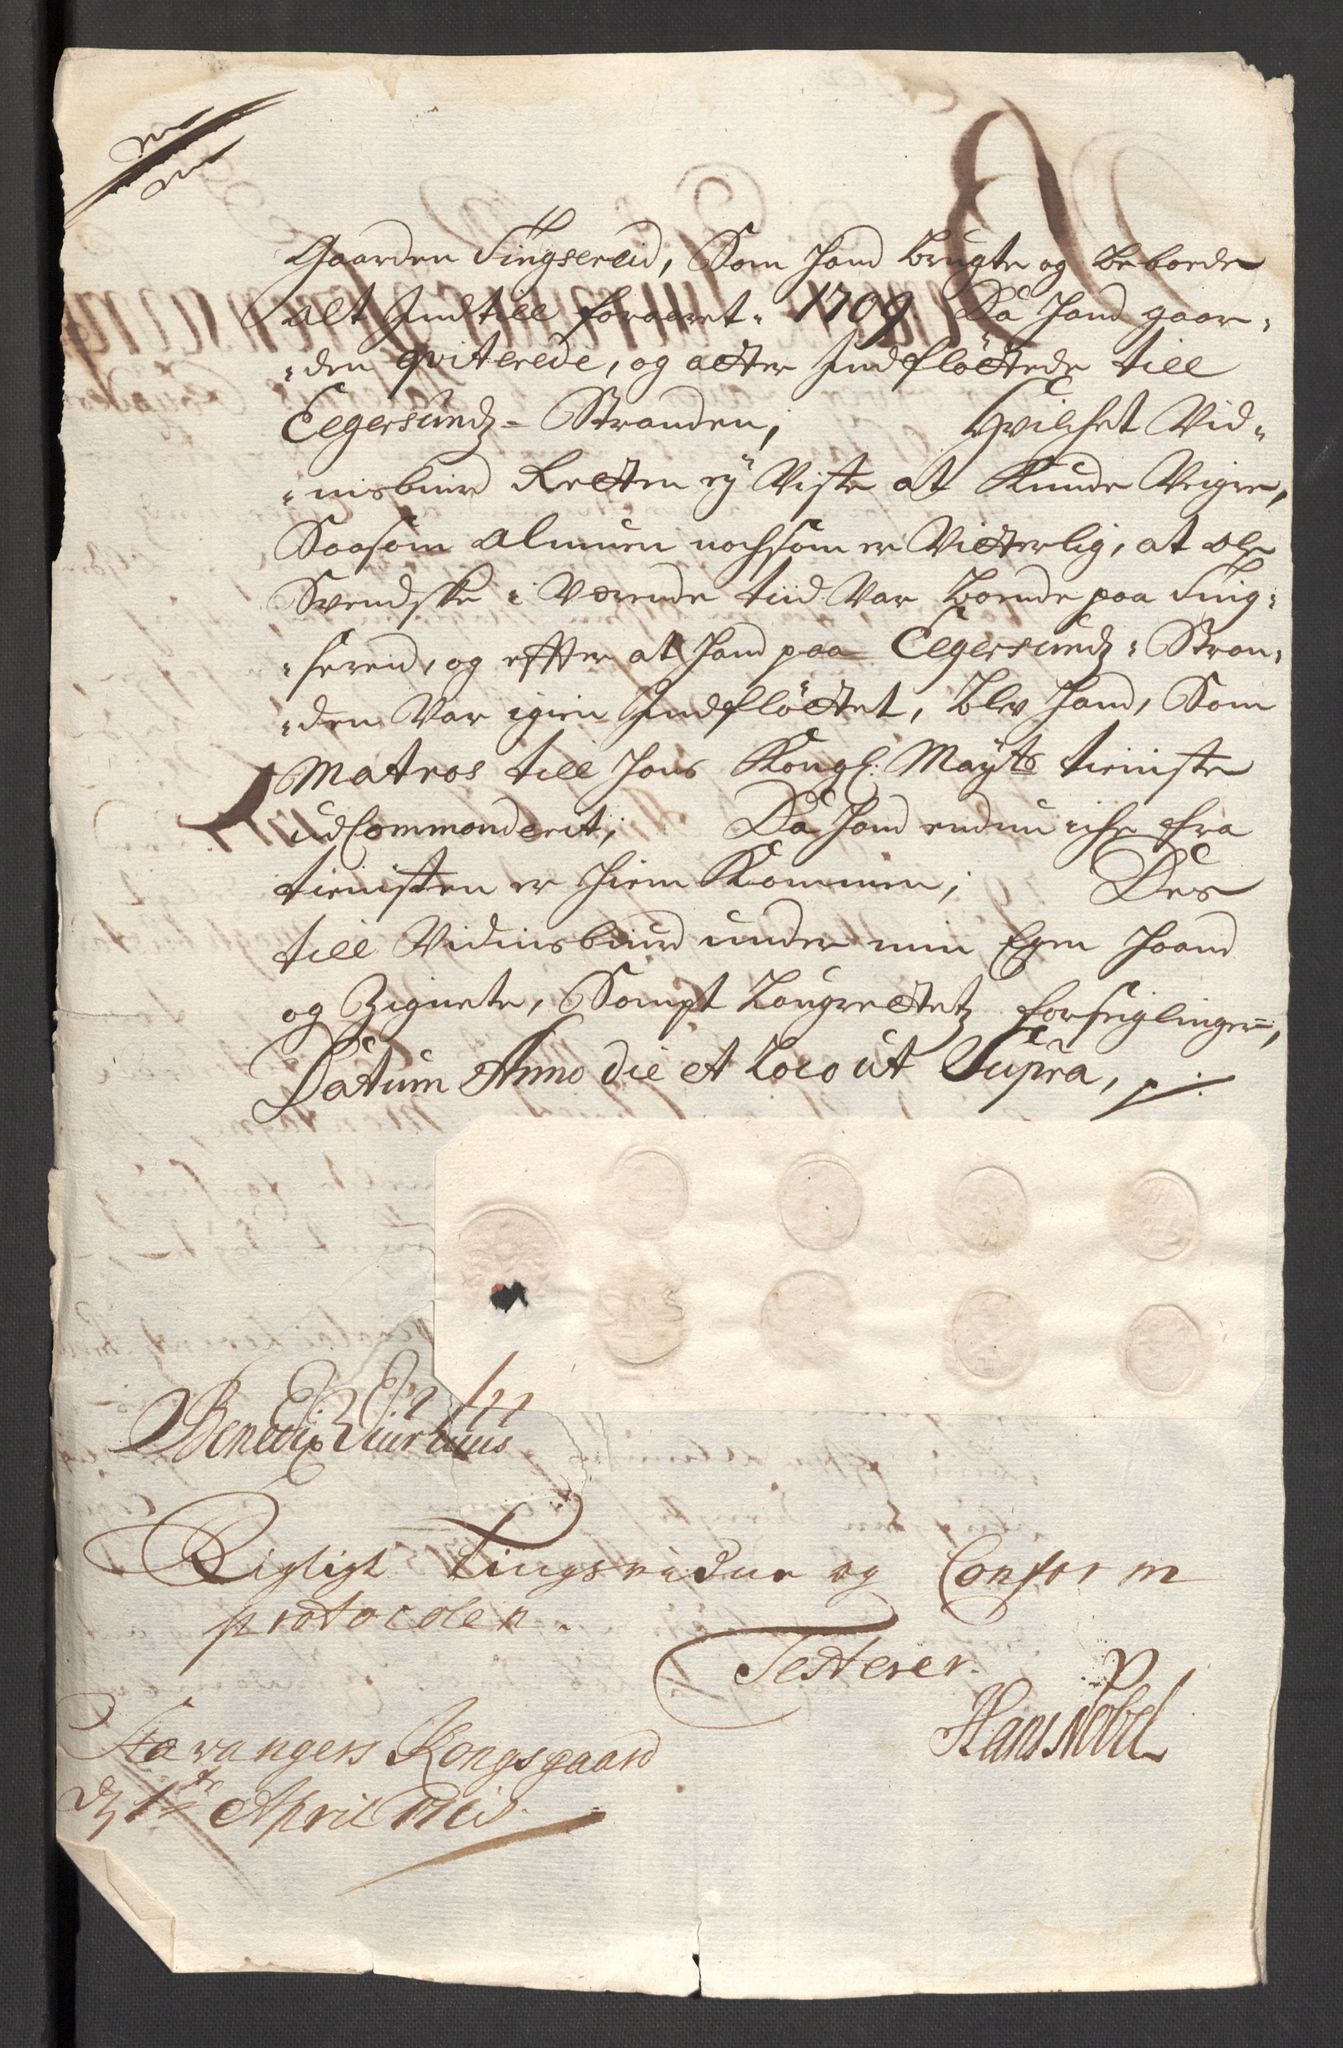 Gaarden Fingsereid, Som hand brugte og beboede
alt Indtill foraaret 1709. Da hand gaar-
den qviterede, og atter Indfløttede till
Eegersundz-Stranden; Hvilchet Vid-
nisburd Retten ej Viste at Kunde Veigre,
Saasom Almuen nochsom er Vitterlig, at Ole
Svendske i Værende tiid Var boende paa Fing-
sereid, og effter at hand paa Eegersundz-Stran-
den Var igien Indfløttet, blev hand, Som
Matros till hans Kongl: Mayts tieniste
udCommanderit; Da hand endnu iche fra
tienisten er hiem Kommen; Des
till Vidnisburd under min Egen Haand
og Zignete, Sampt Laugrettetz forseiglinger,
Datum Anno die et Loco ut Supra, p.
Benedix
Rigtigt Tingsvidne og Conform
protocolen.
Testerer.
Hans Nobel
Stavangers Kongsgaard
d 1ste April